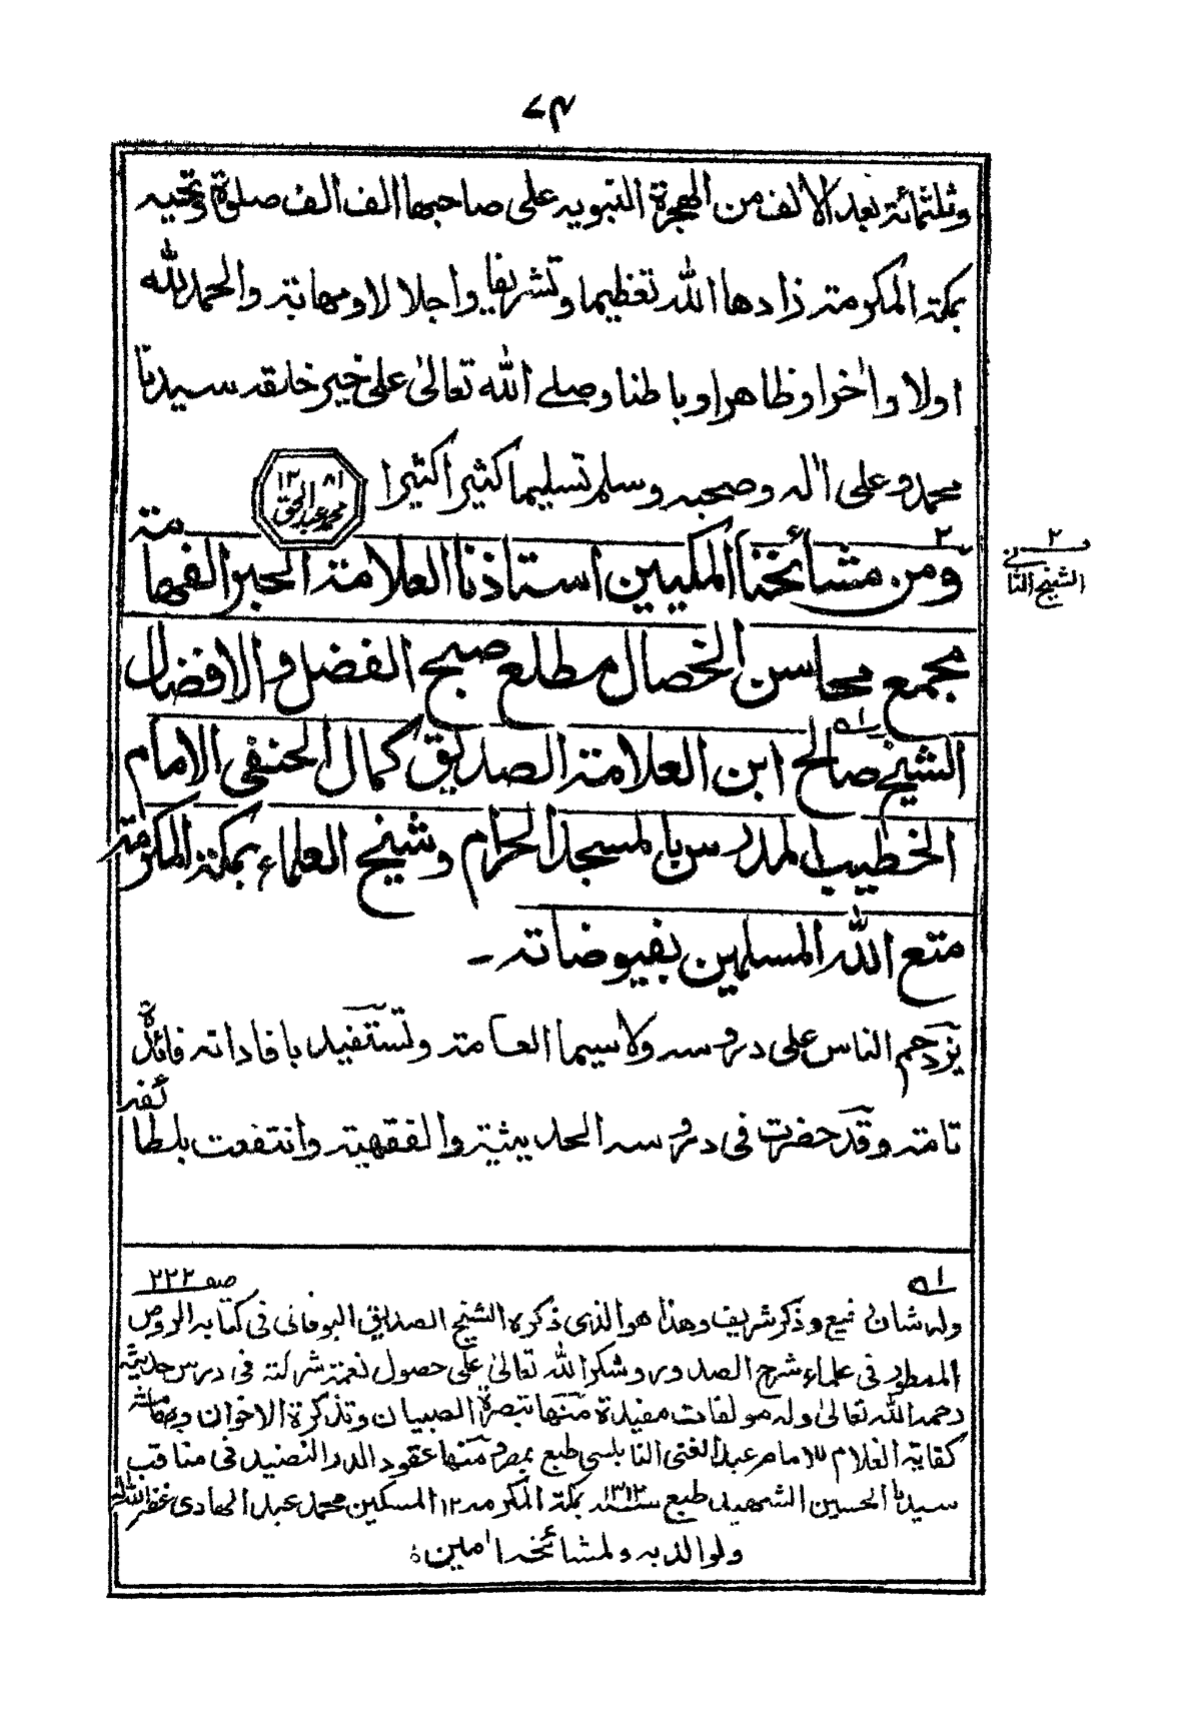 ٧٤
وثلثمائة بعد الالف من الهجرة النبويه على صاحبها الف الف صلوة وتحيه
بمكة المكرمة زادها الله تعظيما وتشريفا واجلالا ومهابة والحمد لله
اولا واٰخرا وظاهرا وباطنا وصلے الله تعالىٰ على خير خلقه سيدنا
محمد وعلى اٰله وصحبه وسلم تسليما كثيرا كثيرا
١٢٨١ محمد عبد الحق
٢
٢ الشيخ الثانى
ومن مشائخنا المكيين استاذنا العلامة الحبر الفهامة
مجمع محاسن الخصال مطلع صبح الفضل والافضال
الشيخ صالح ١ه ابن العلامة الصديق كمال الحنفى الامام
الخطيب المدرس بالمسجد الحرام وشيخ العلماء بمكة المكرمة
متع الله المسلمين بفيوضاته ـ
يزدحم الناس على دروسه ولاسيما العامة وتستفيد بافاداته فائدة
تامة وقد حضرت فى دروسه الحديثية والفقهية وانتفعت بلطائفه
١ه
وله شان فيع وذكر شريف وهذا هو الذى ذكره الشيخ الصديق البوفانى فى كتابه الروض صف ٢٢٢
الممطور فى علماء شرح الصدور وشكر الله تعالىٰ على حصول نعمة شركة فى درس حديثية
رحمه الله تعالىٰ وله مولفات مفيدة منها تبصرة الصبيان وتذكرة الاخوان
كفاية الغلام للامام عبد الغنى النابلسى طبع بمصر ومنها عقود الدر النضيد فى مناقب
سيدنا الحسين الشهيد طبع ١٣١٢ سنه بمكة المكرمه ١٢ المسكين محمد عبد الهادى غفر الله له
ولوالديه ولمشائخه اٰمين ۀ